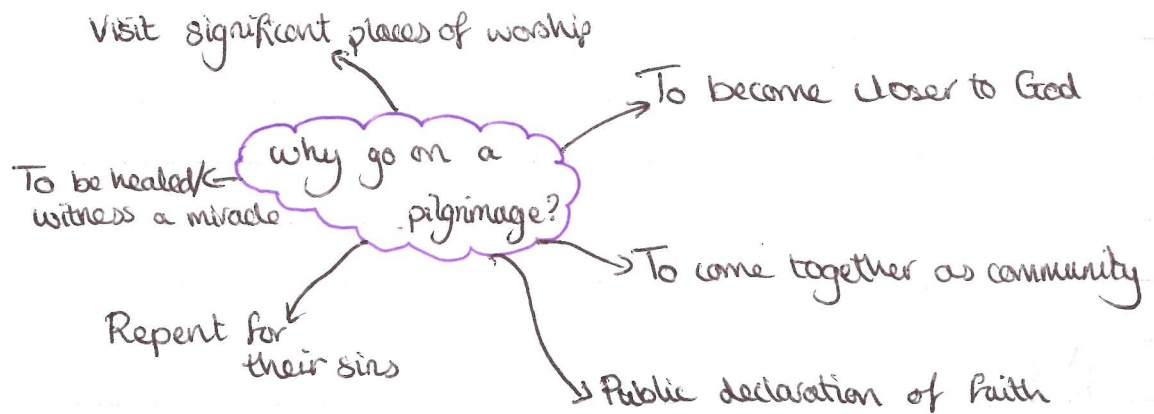 Visit significant places of worship
To become closer to God
why go on a
pilgrimage?
To be healed/
witness a miracle
To come together as community
Repent for
their sins
Public declaration of faith